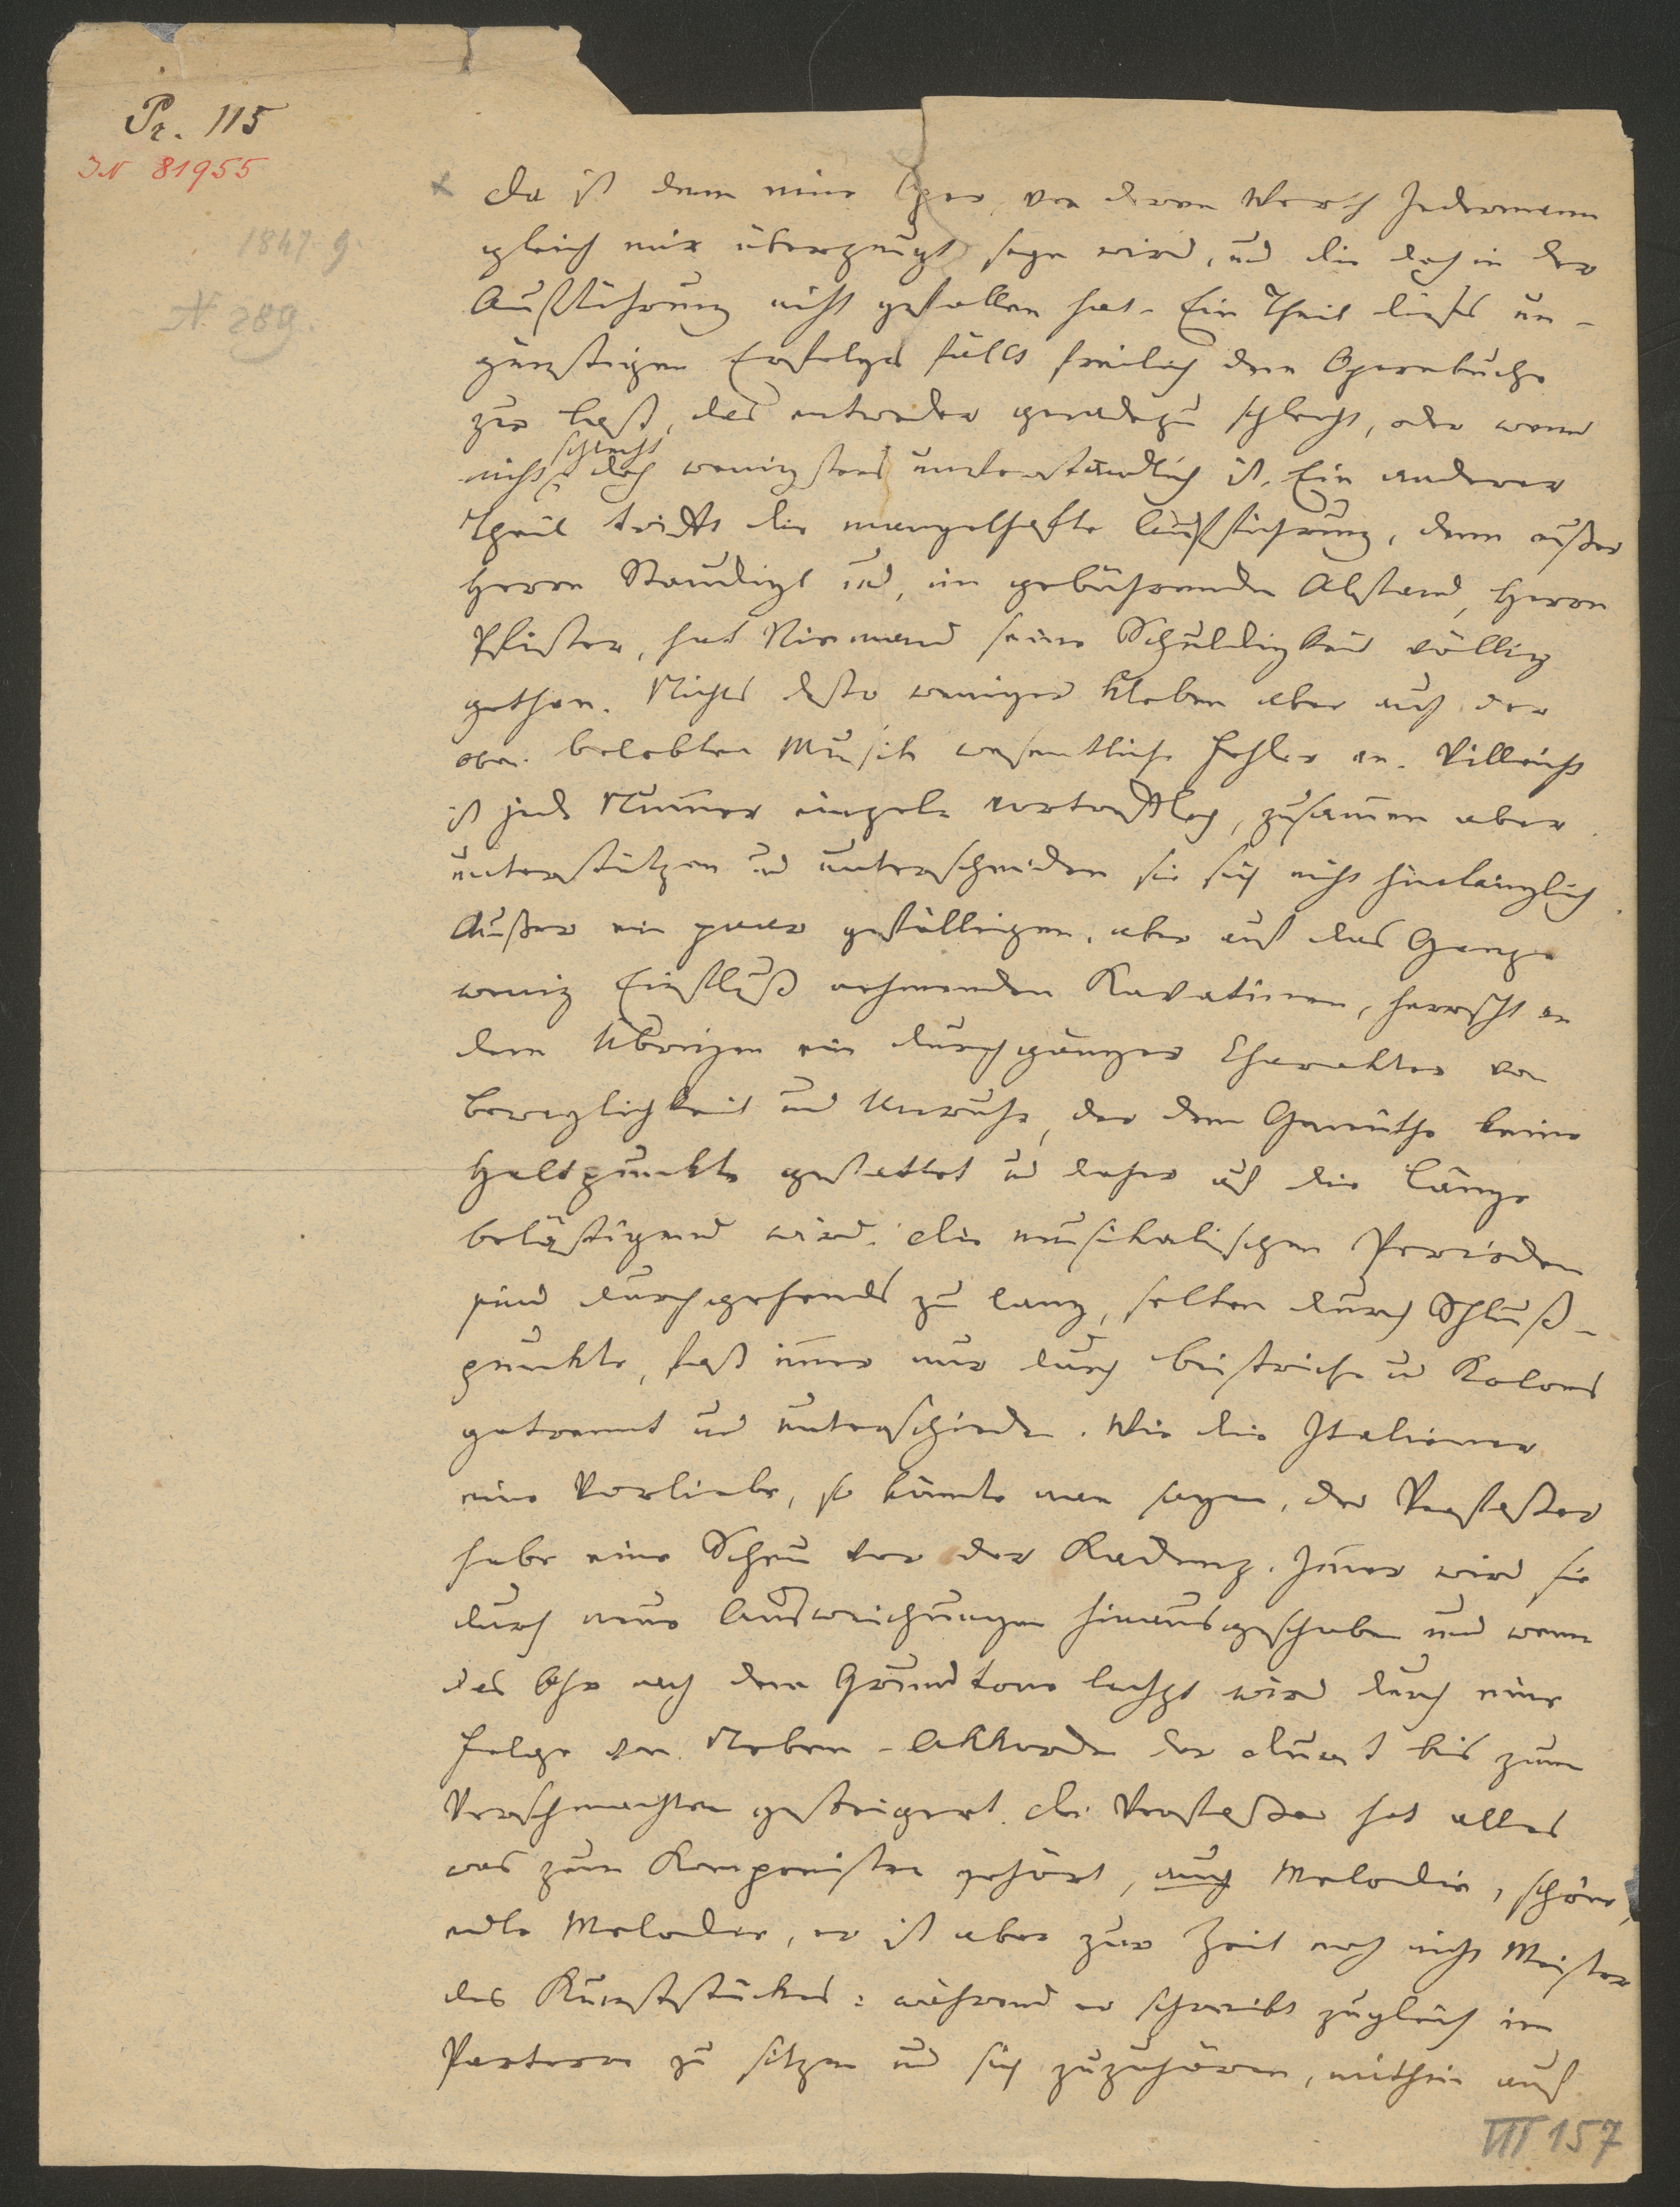 Pr. 115
IN 81955
1847. g.
N. 289.
Da ist denn eine Oper, von deren Werth Jedermann
gleich mir überzeugt seyn wird, und die doch in der
Aufführung nicht gefallen hat. Ein Theil dieses un-
günstigen Erfolges fällt freilich dem Opernbuche
zur Last, das entweder geradezu schlecht, oder wenn
schlecht
nicht doch wenigstens unverständlich ist. Ein anderer
Theil trifft die mangelhafte Aufführung, denn außer
Herrn Staudigl und, im gebührenden Abstand, Herrn
Pfister, hat Niemand seine Schuldigkeit völlig
gethan. Nichts desto weniger kleben aber auch der
oben belobten Musik wesentliche Fehler an. Villeicht
ist jede Num̅er einzeln vortrefflich, zusam̅en aber
unterstützen und unterscheiden sie sich nicht hinlänglich.
Außer ein paar gefälligen, aber auf das Ganze
wenig Einfluß nehmenden Kavatinen, herrscht in
dem Übrigen ein durchgängiger Charakter von
Beweglichkeit und Unruhe, der dem Gemüthe keine
Haltpunkte gestattet und daher auf die Länge
belästigend wird. Die musikalischen Perioden
sind durchgehends zu lang, selten durch Schluß-
punkte, fast im̅er nur durch Beistriche und Kolons
getrennt und unterschieden. Wie die Italiener
eine Vorliebe, so könnte man sagen, der Verfasser
habe eine Scheu vor der Kadenz. Im̅er wird sie
durch neue Ausweichungen hinausgeschoben und wenn
das Ohr nach dem Grundtone lechzt wird durch eine
Folge von Neben-Akkorden der Durst bis zum
Verschmachten gesteigert. Der Verfasser hat alles
was zum Komponisten gehört, auch Melodie, schöne,
edle Melodie, er ist aber zur Zeit noch nicht Meister
des Kunststückes: während er schreibt zugleich im
Parterre zu sitzen und sich zuzuhören, mithin auf
VII 157